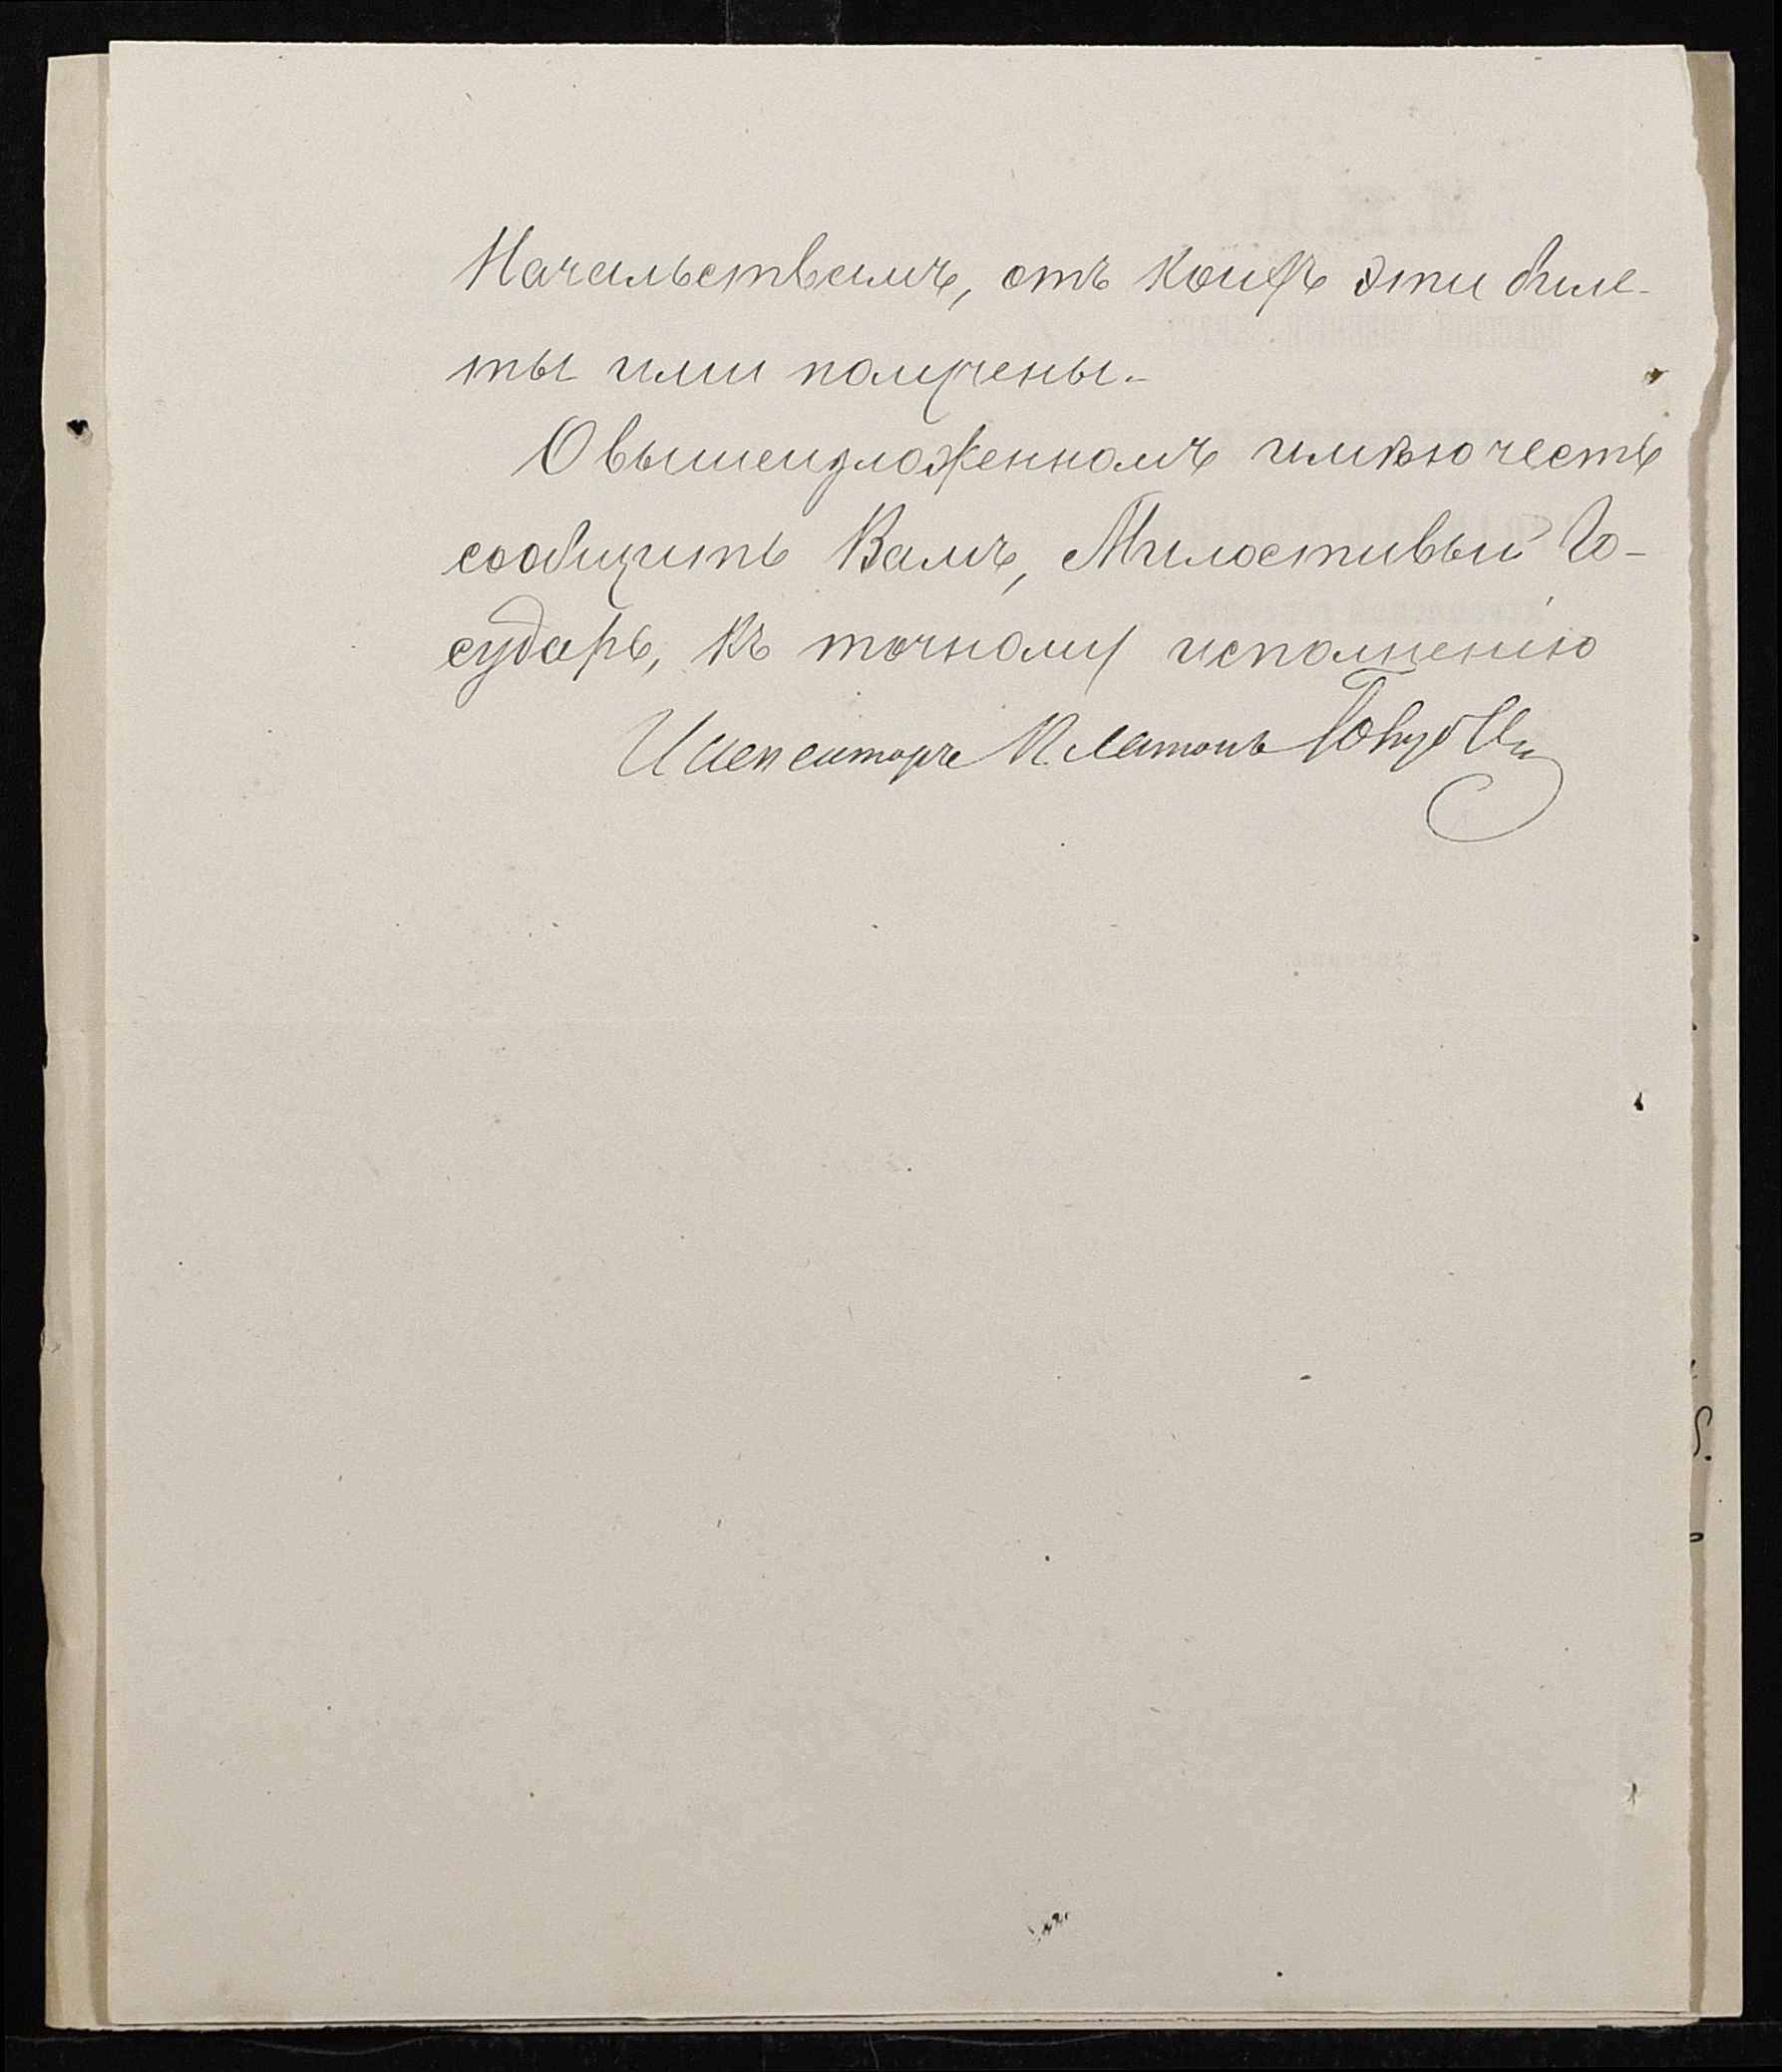 Начальствамъ, отъ коихъ эти биле-
ты ими получены.
О вышеизложенномъ имѣю честь
сообщить Вамъ, Милостивый Го-
сударь, къ точному исполненію
Инспекторъ Платонъ